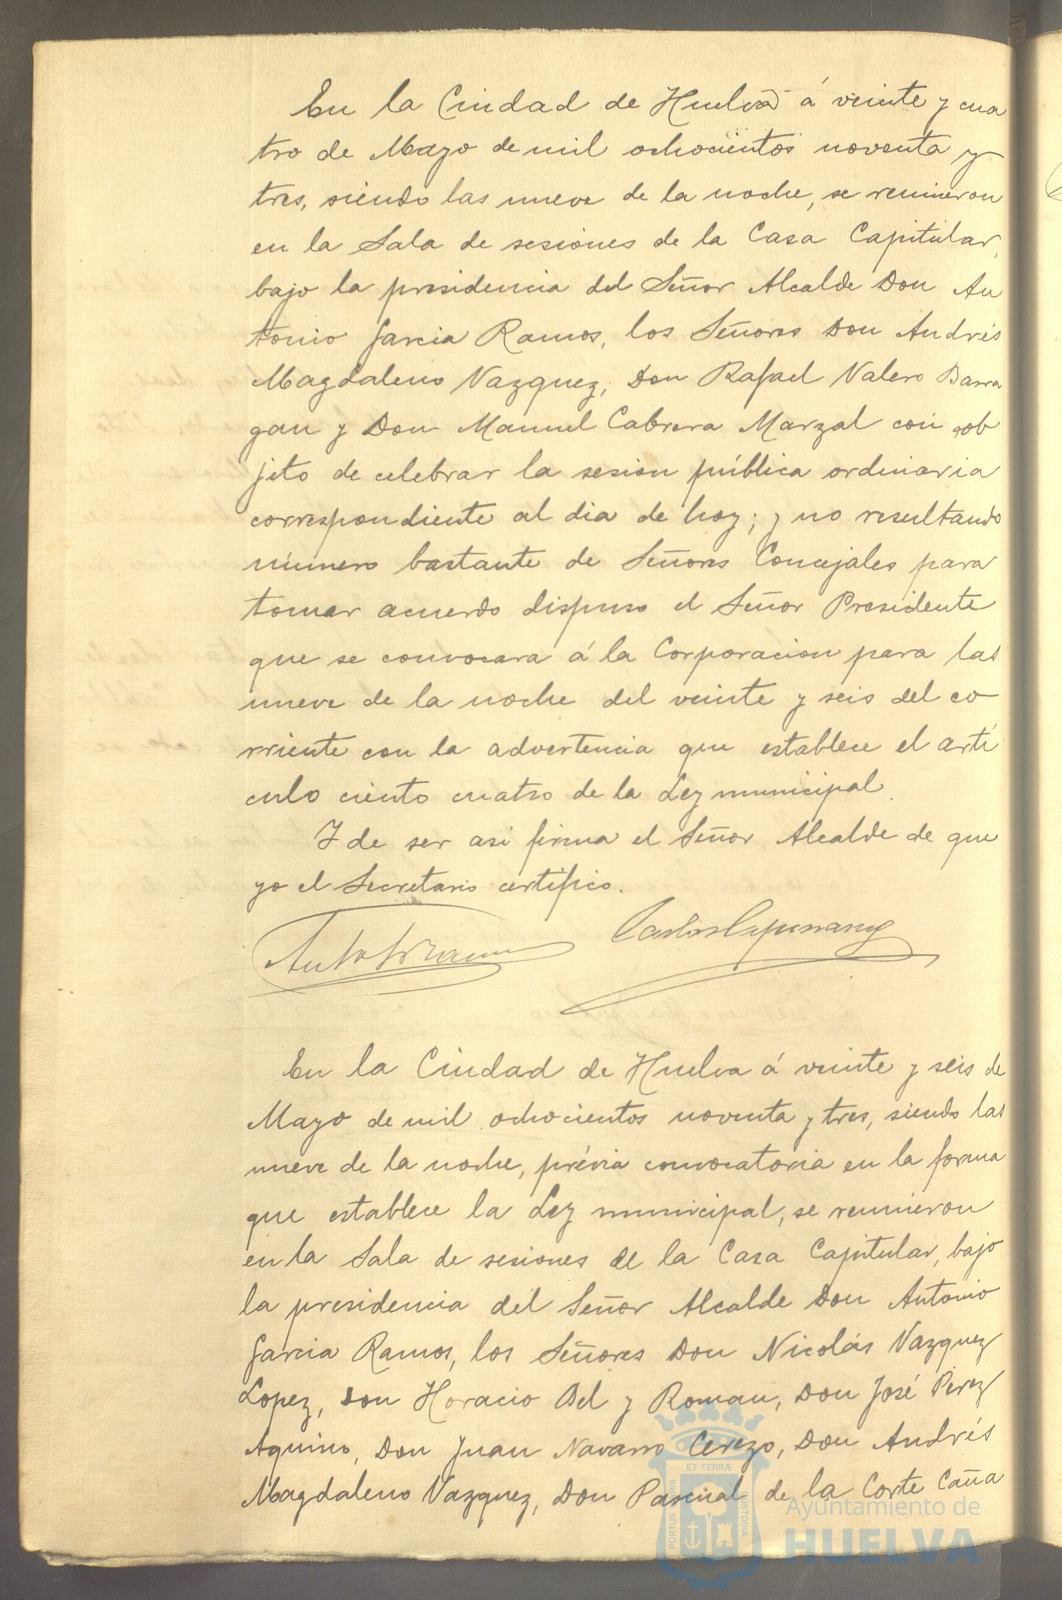 En la Ciudad de Huelva á veinte y cua
tro de Mayo de mil ochocientos noventa y
tres, siendo las nueve de la noche, se reunieron
en la Sala de sesiones de la Casa Capitular,
bajo la presidencia del Señor Alcalde Don An
tonio Garcia Ramos, los Señores Don Andrés
Magdaleno Vazquez, Don Rafael Valero Barra
gan y Don Manuel Cabrera Marzal con ob
jeto de celebrar la sesion pública ordinaria
correspondiente al dia de hoy; y no resultando
número bastante de Señores Concejales para
tomar acuerdo dispuso el Señor Presidente
que se convocara á la Corporacion para las
nueve de la noche del veinte y seis del co
rriente con la advertencia que establece el artí
culo ciento cuatro de la Ley municipal.
Y de ser asi firma el Señor Alcalde de que
yo el Secretario certifico.
En la Ciudad de Huelva á veinte y seis de
Mayo de mil ochocientos noventa y tres, siendo las
nueve de la noche, prévia convocatoria en la forma
que establece la Ley municipal, se reunieron
en la Sala de sesiones de la Casa Capitular, bajo
la presidencia del Señor Alcalde Don Antonio
Garcia Ramos, los Señores Don Nicolás Vazquez
Lopez, Don Horacio Bel y Roman, Don José Perez
Aquino, Don Juan Navarro Cerezo, Don Andrés
Magdaleno Vazquez, Don Pascual de la Corte Caña
ET TERRÆ
PORTUS MARIS
CUSTODIA
Ayuntamiento de
HUELVA